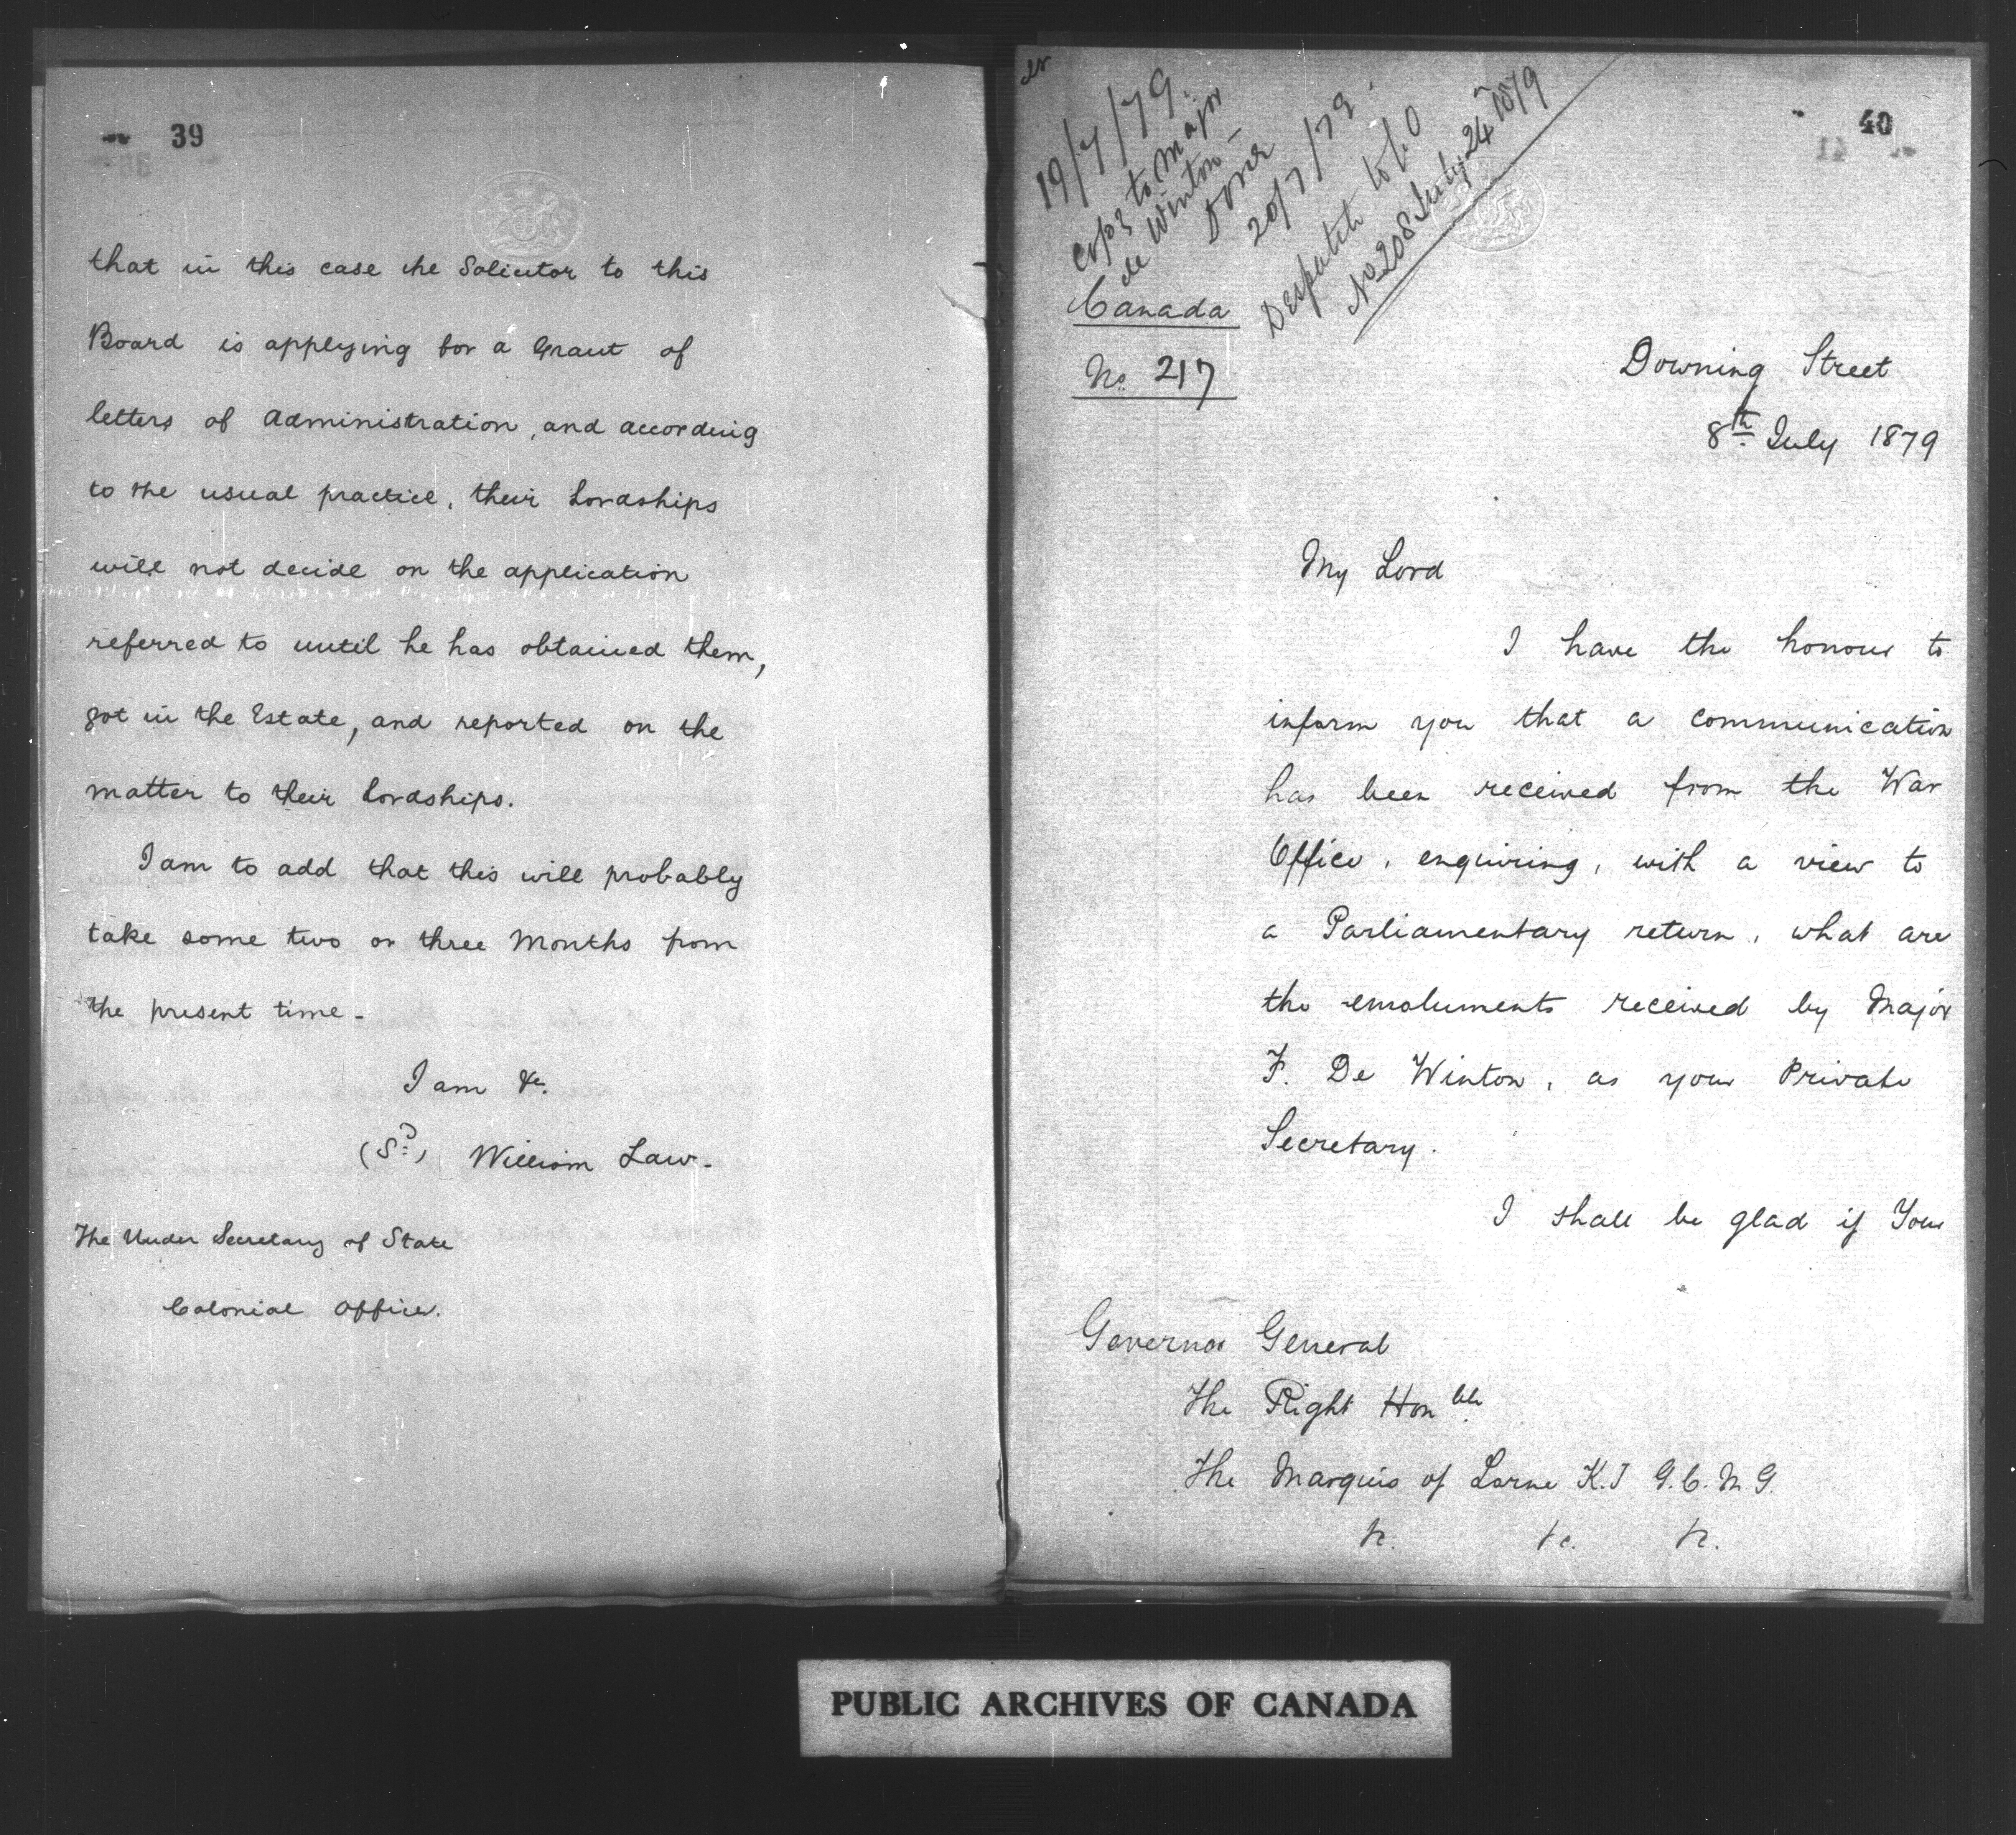 39
that in this case the Solicitor to this
Board is applying for a Grant of
letters of Administration, and according
to the usual practice, their Lordships
will not decide on the application
referred to until he has obtained them,
got in the Estate, and reported on the
matter to their Lordships.
I am to add that this will probably
take some two or three Months from
the present time -
I am &c.
(Sd) William Law -
The Under Secretary of State
Colonial Office.
40
19/7/79.
Copy to Major
de Winton -
Done
20/7/79.
Despatch to C.O
No 208 July 24 1879
Canada
No 217
Downing Street
8th July 1879
My Lord
I have the honour to
inform you that a communication
has been received from the War
Office, enquiring, with a view to
a Parliamentary return, what are
the emoluments received by Major
F. De Winton, as your Private
Secretary.
I shall be glad if Your
Governor General
The Right Honble
The Marquis of Lorne K.T G.C.M.G.
&c. &c. &c.
PUBLIC ARCHIVES OF CANADA